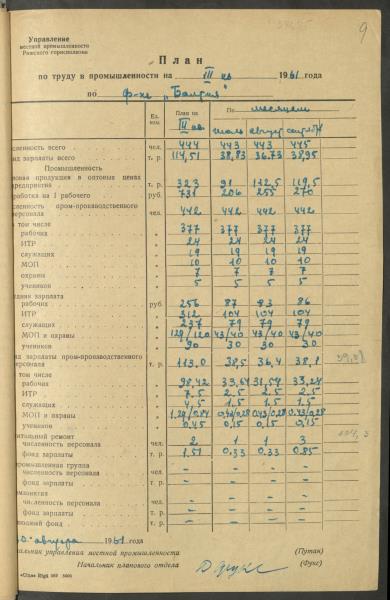 9
Управление
местной промышленности
Рижского горисполкома
План
по труду в промышленности на III кв 1961 года
по ф-ке „Балтия"
Ед. изм. План на III кв. По месяцам
июль август сентябрь
сленность всего чел. 444 443 444 445
нд зарплаты всего т. р. 114,51 38,83 36.73 38,95
Промышленность
ловая продукция в оптовых ценах
предприятия т. р. 323 91 112,5 119,5
работка на 1 рабочего руб. 731 206 255 270
сленность пром-производственного
персонала чел. 442 442 442 442
том числе
рабочих " 377 377 377 377
ИТР " 24 24 24 24
служащих " 19 19 19 19
МОП " 10 10 10 10
охраны " 7 7 7 7
учеников " 5 5 5 5
едняя зарплата
рабочих руб. 256 87 83 86
ИТР " 312 104 104 104
служащих " 237 79 79 79
МОП и охраны " 129/120 43/40 43/40 43/40
учеников " 90 30 30 30
нд зарплаты пром-производственного
персонала т. р. 113,0 38,5 36,4 38,1
том числе
рабочих " 98,42 33,64 31,54 33,24
ИТР " 7,5 2,5 2,5 2,5
служащих " 4,5 1,5 1,5 1,5
МОП и охраны " 1.29/0.84 0,43/0,28 0,43/0,28 0,43/0,28
учеников " 0,45 0,15 0,15 0,15
питальный ремонт
численность персонала чел. 2 1 1 3
фонд зарплаты т. р. 1,51 0,33 0.33 0.85
промышленная группа
численность персонала чел. - - - -
фонд зарплаты т. р. - - - -
численность персонала чел. - - - -
фонд зарплаты т. р. - - - -
фонд т. р. - - - -
августа 1961 года
чальник управления местной промышленности (Путан)
Начальник планового отдела (Фукс)